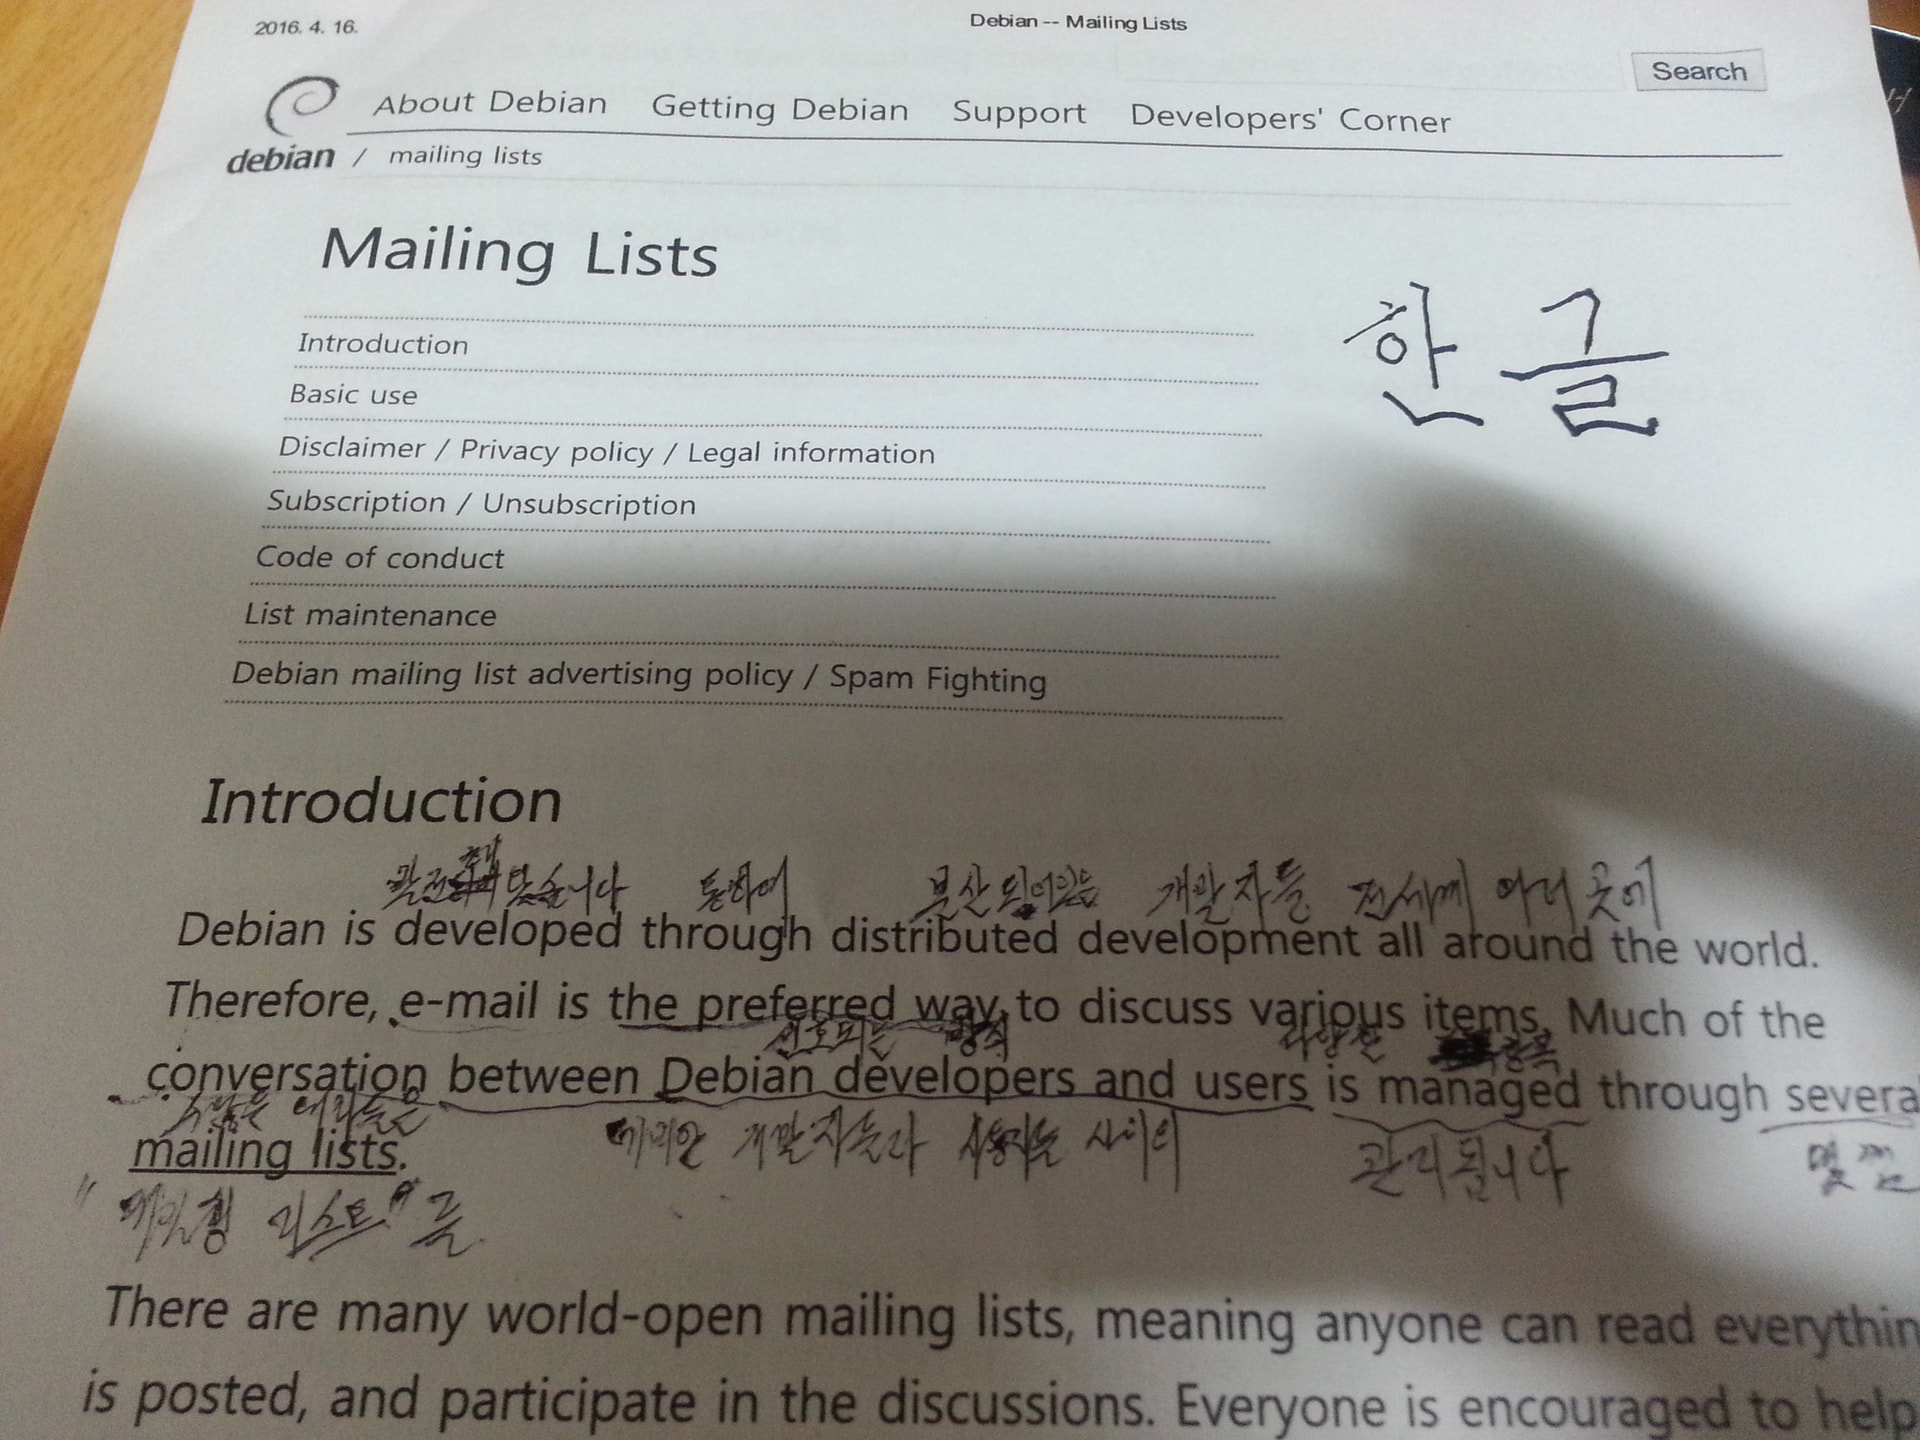 2016. 4. 16.
Debian -- Mailing Lists
Search
About Debian Getting Debian Support Developers' Corner
debian / mailing lists
Mailing Lists
한글
Introduction
Basic use
Disclaimer / Privacy policy / Legal information
Subscription / Unsubscription
Code of conduct
List maintenance
Debian mailing list advertising policy / Spam Fighting
Introduction
통하여 분산되어있는 개발자들 전세계 여러 곳에
Debian is developed through distributed development all around the world.
Therefore, e-mail is the preferred way to discuss various items. Much of the
선호되는 방식 다양한 항목
conversation between Debian developers and users is managed through several
수많은 대화들은
mailing lists.
데비안 개발자들과 사용자들 사이의 관리됩니다 몇몇
"메일링 리스트"를
There are many world-open mailing lists, meaning anyone can read everythin
is posted, and participate in the discussions. Everyone is encouraged to help